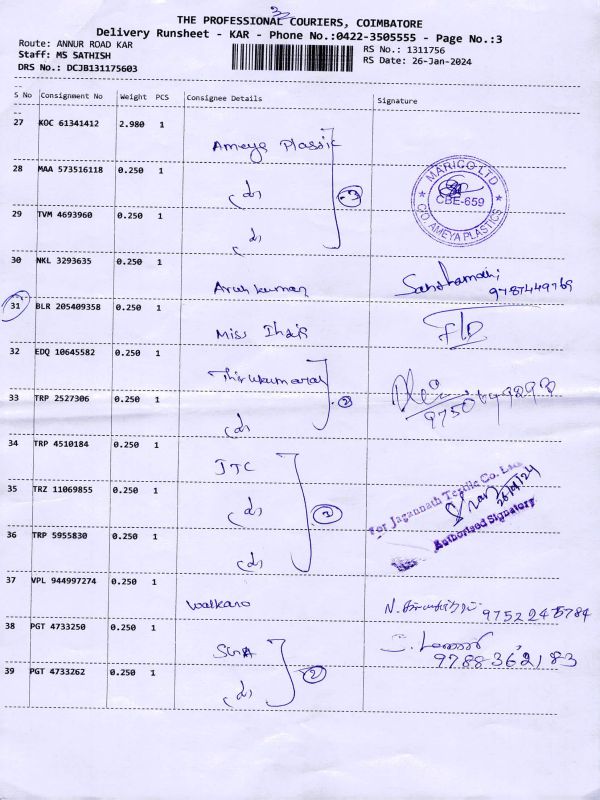 32
THE PROFESSIONAL COURIERS, COIMBATORE
Delivery Runsheet - KAR - Phone No.:0422-3505555 - Page No.:3
Route: ANNUR ROAD KAR
RS No.: 1311756
Staff: MS SATHISH
RS Date: 26-Jan-2024
DRS No.: DCJB131175603
S No Consignment No Weight PCS Consignee Details Signature
27 KOC 61341412 2.980 1 Ameya Plastic
28 MAA 573516118 0.250 1 (d) 3
MARICO LTD
CBE-659
C/O. AMEYA PLASTICS
29 TVM 4693960 0.250 1 (d)
30 NKL 3293635 0.250 1 Arunkumar
9787449769
31 BLR 205409358 0.250 1 Miss
32 EDQ 10645582 0.250 1 Thirukumaran
33 TRP 2527306 0.250 1 (d) 2
34 TRP 4510184 0.250 1 JTC
For Jagannath Textile Co. Ltd.
26/1/24
Authorised Signatory
35 TRZ 11069855 0.250 1 (d)
36 TRP 5955830 0.250 1 (d)
37 VPL 944997274 0.250 1 Walkaro
38 PGT 4733250 0.250 1
9788362183
39 PGT 4733262 0.250 1 (d) 2